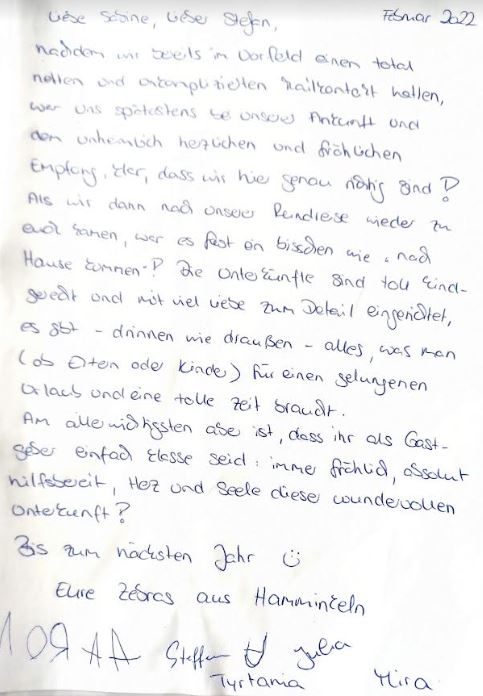 Liebe Sabine, lieber Stefan, Februar 2022
nachdem wir bereits im Vorfeld einen total
netten und unkomplizierten Mailkontakt hatten,
war uns spätestens bei unserer Ankunft und
dem unheimlich herzlichen und fröhlichen
Empfang, klar, dass wir hier genau richtig sind!
Als wir dann nach unserer Rundreise wieder zu
euch kamen, war es fast ein bisschen wie „nach
Hause kommen"! Die Unterkünfte sind toll kind-
gerecht und mit viel Liebe zum Detail eingerichtet,
es gibt - drinnen wie draußen - alles, was man
(ob Eltern oder Kinder) für einen gelungenen
Urlaub und eine tolle Zeit braucht.
Am allerwichtigsten aber ist, dass ihr als Gast-
geber einfach klasse seid: immer fröhlich, absolut
hilfsbereit, Herz und Seele dieser wundervollen
Unterkunft!
Bis zum nächsten Jahr ☺
Eure Zebras aus Hamminkeln
Steffen Julia
Tyrtania Mira